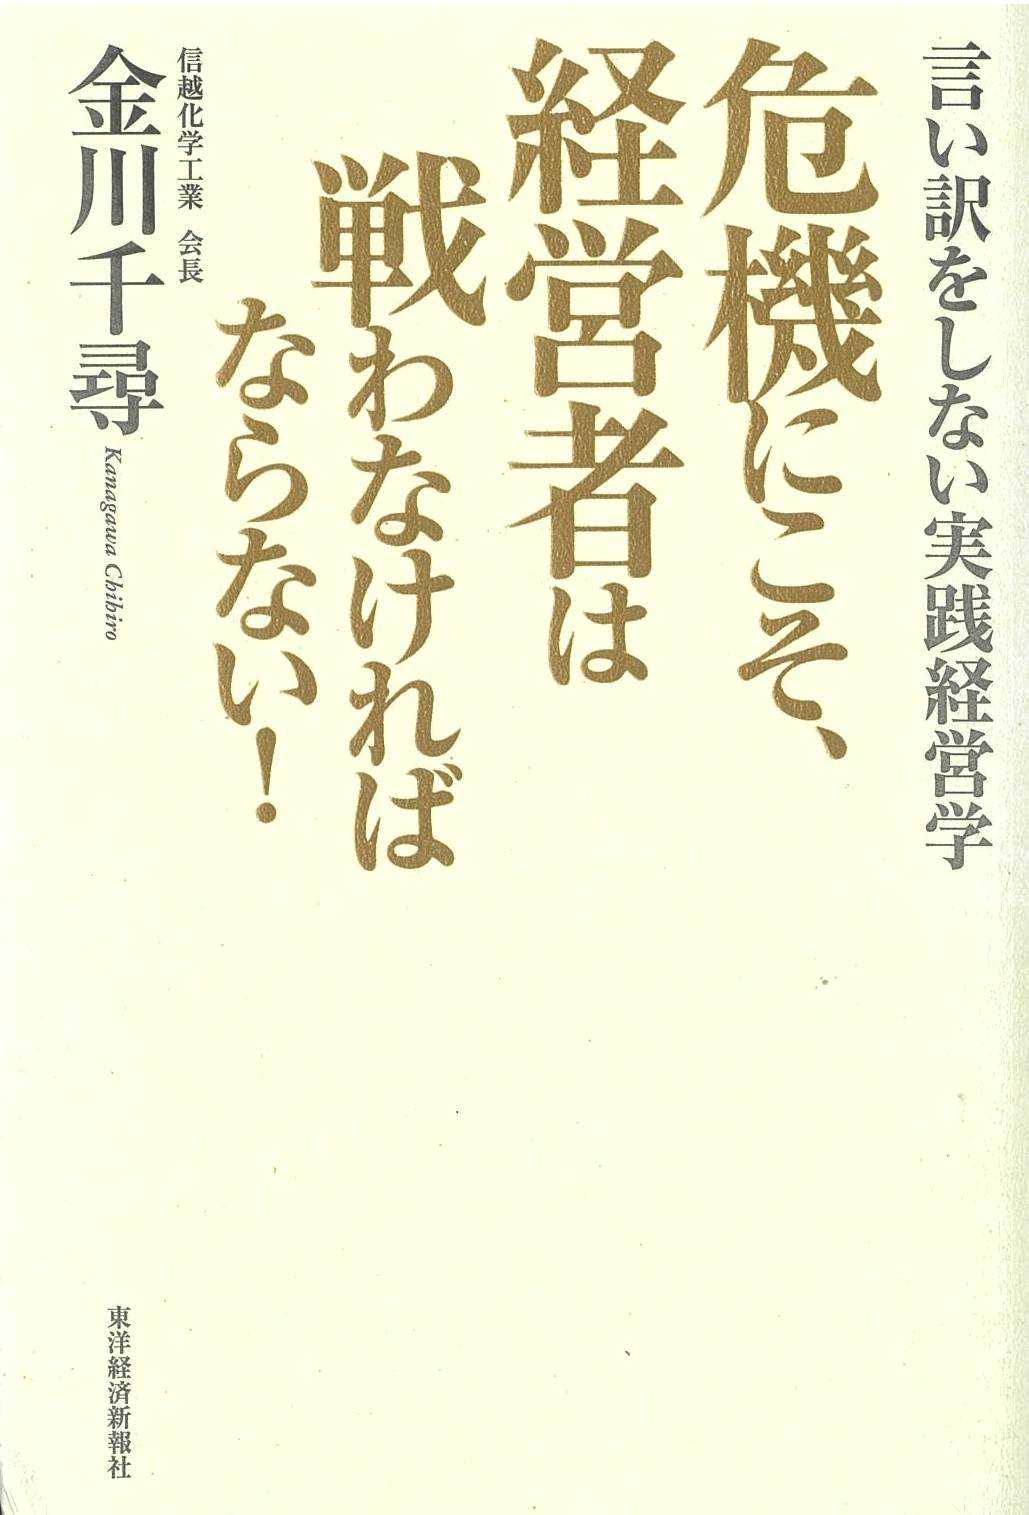 言い訳をしない実践経営学
危機にこそ、
経営者は
戦わなければ
ならない！
信越化学工業 会長
金川千尋
Kanagawa Chihiro
東洋経済新報社